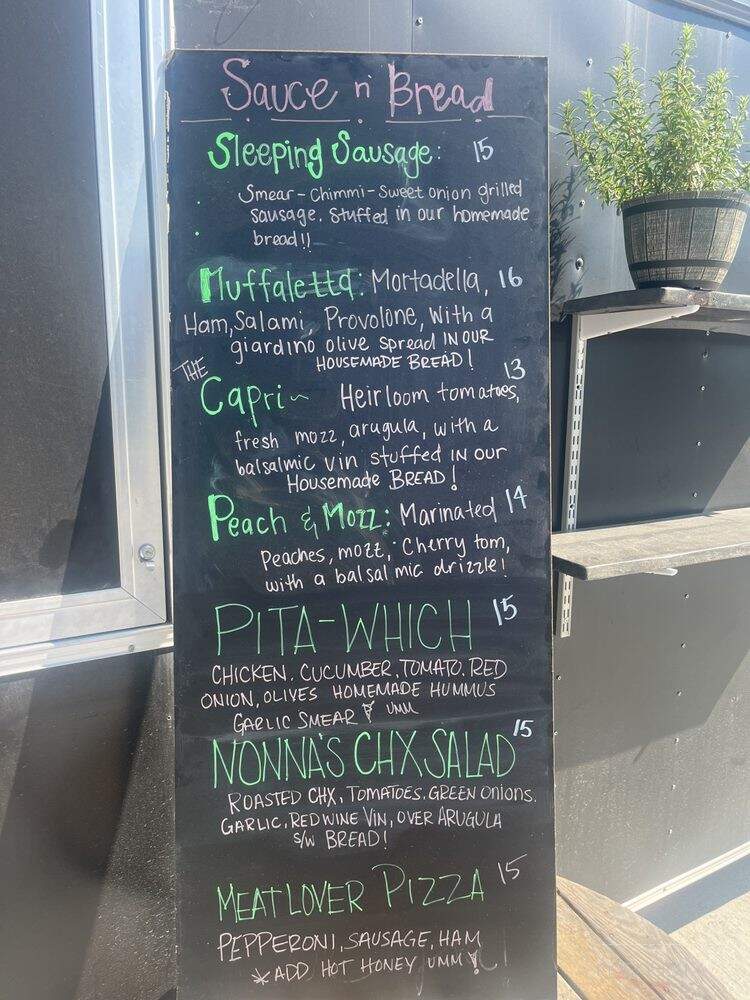 Sauce n' Bread
Sleeping Sausage: 15
Smear - Chimmi - Sweet onion grilled
sausage. Stuffed in our homemade
bread!!
Muffaletta: Mortadella, 16
Ham, Salami, Provolone, With a
giardino olive spread IN OUR
HOUSEMADE BREAD!
THE
Capri~ Heirloom tomatoes, 13
fresh mozz, arugula, with a
balsalmic vin stuffed IN our
Housemade BREAD!
Peach & Mozz: Marinated 14
Peaches, mozz, Cherry tom,
with a balsalmic drizzle!
PITA-WHICH 15
CHICKEN. CUCUMBER, TOMATO. RED
ONION, OLIVES HOMEMADE HUMMUS
GARLIC SMEAR UMM
NONNA'S CHX SALAD 15
ROASTED CHX, TOMATOES. GREEN Onions.
GARLIC, RED WINE VIN, OVER ARUGULA
S/W BREAD!
MEATLOVER PIZZA 15
PEPPERONI, SAUSAGE, HAM
*ADD HOT HONEY UMM!